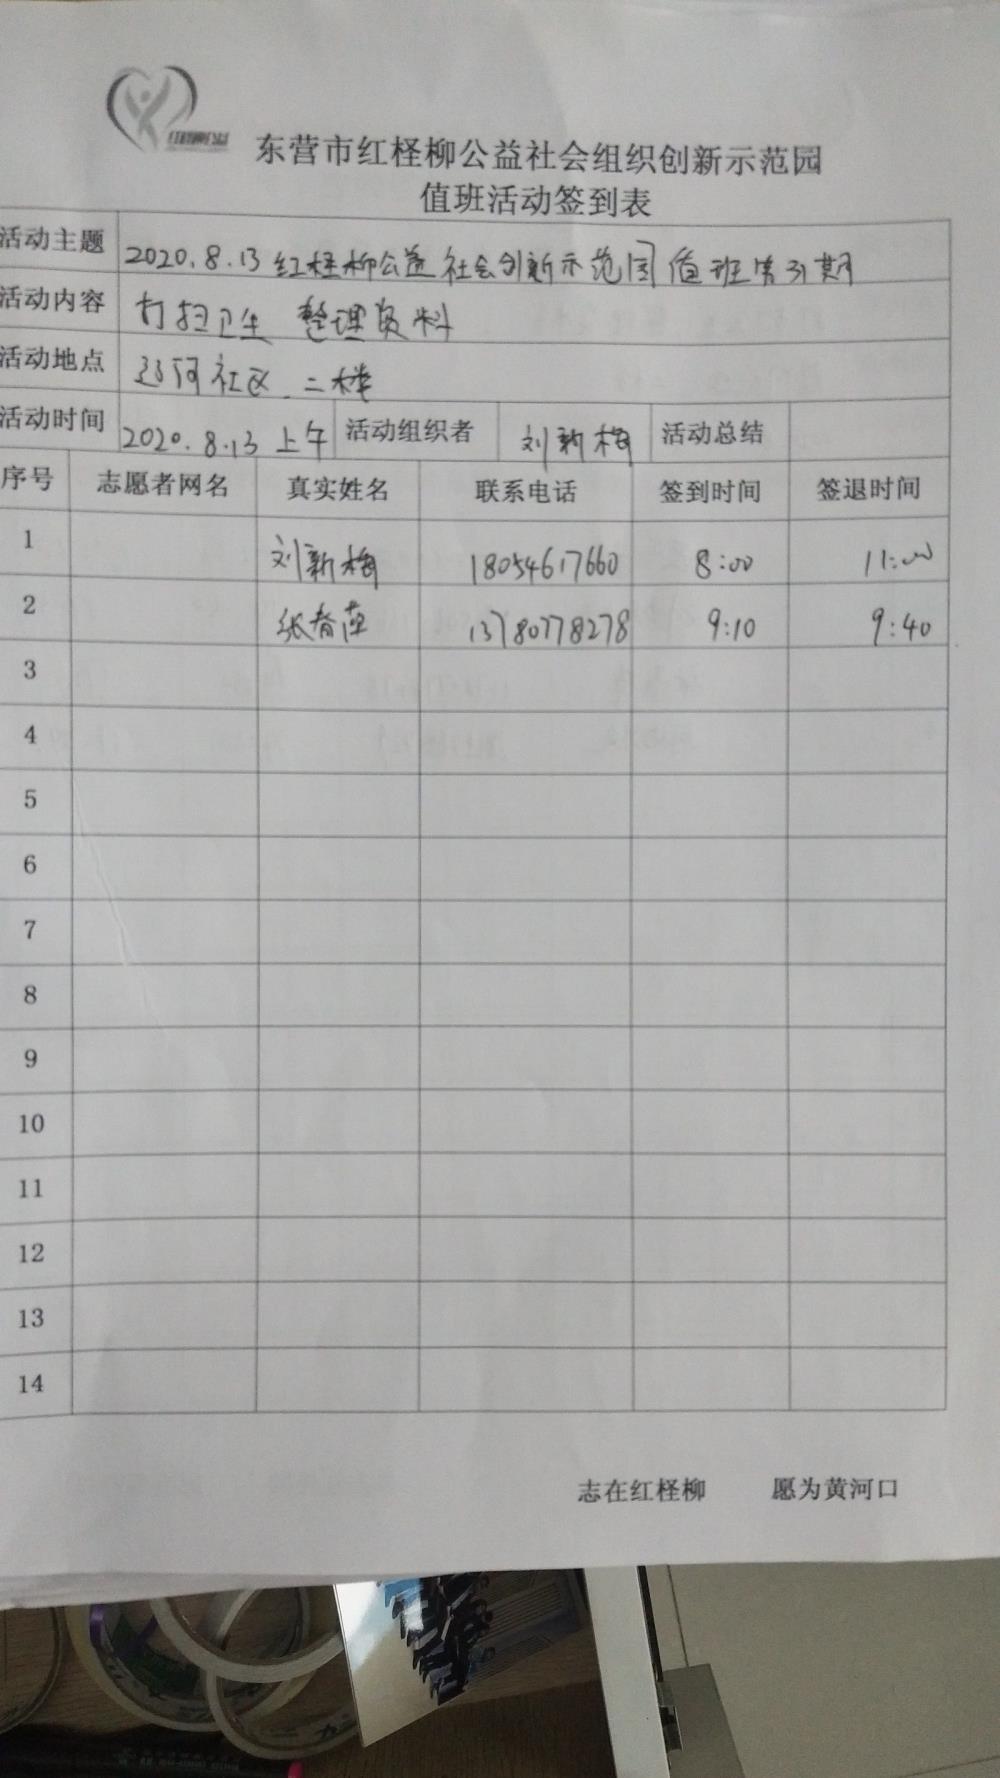 东营市红柽柳公益社会组织创新示范园
值班活动签到表
活动主题 2020.8.13红柽柳公益社会创新示范园值班第31期
活动内容 打扫卫生 整理资料
活动地点 社区 二楼
活动时间 2020.8.13上午 活动组织者 刘新梅 活动总结
序号 志愿者网名 真实姓名 联系电话 签到时间 签退时间
1 刘新梅 18054617660 8:00 11:00
2 张春莲 13780778278 9:10 9:40
3
4
5
6
7
8
9
10
11
12
13
14
志在红柽柳 愿为黄河口